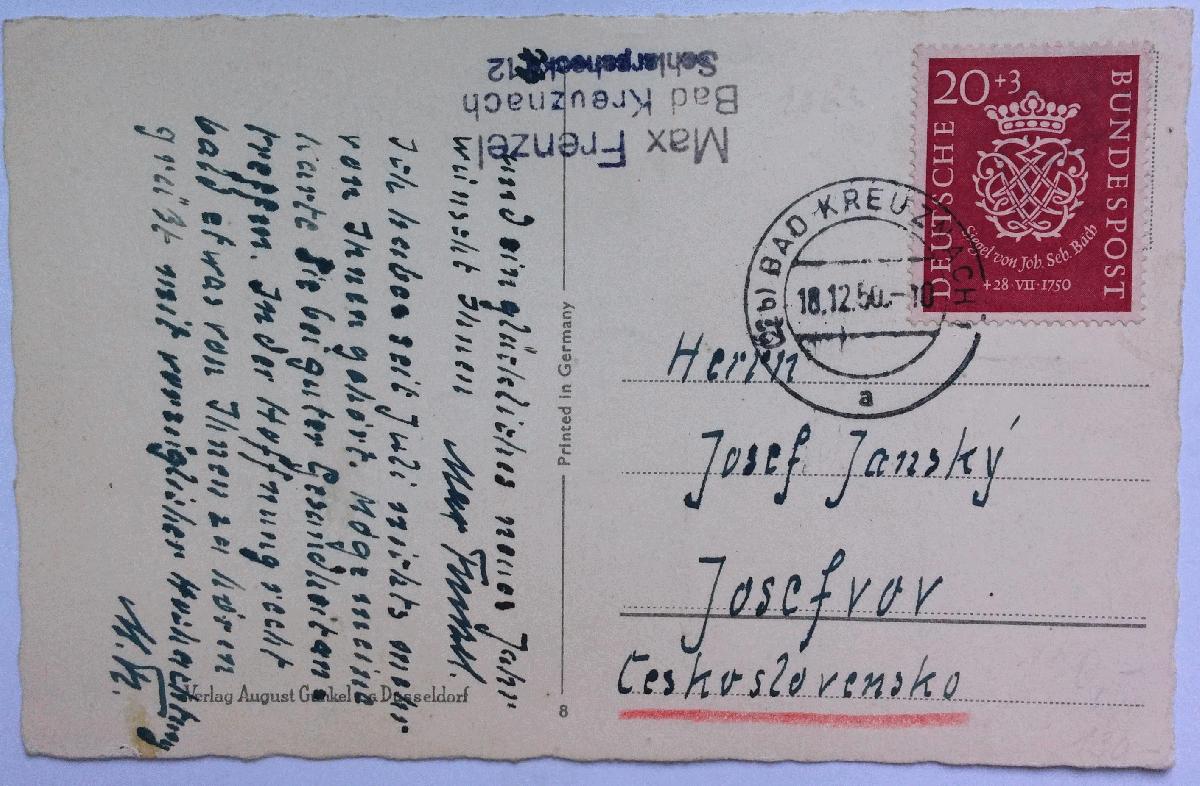 Max Frenzel
Bad Kreuznach
12
und ein glückliches neues Jahr
wünscht Ihnen
Max Frenzel.
Ich habe seit Juli nichts mehr
von Ihnen gehört. Möge meine
Karte Sie bei guter Gesundheit an=
treffen. In der Hoffnung recht
bald etwas von Ihnen zu hören
grüßt mit vorzüglicher Hochachtung
M. Fr.
Verlag August Gunkel Düsseldorf
Printed in Germany
8
20+3
DEUTSCHE BUNDESPOST
Siegel von Joh. Seb. Bach
+28·VII·1750
(22b) BAD KREUZNACH
18.12.50.-10
a
Herrn
Josef Janský
Josefvov
Československo
130-